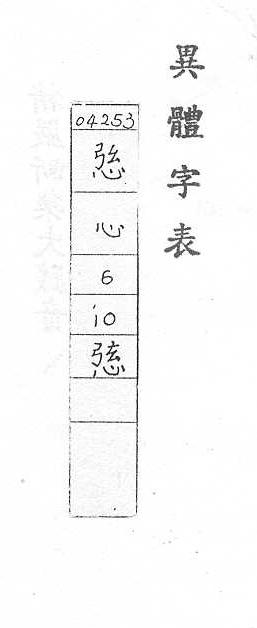 異體字表
04253
心
6
10